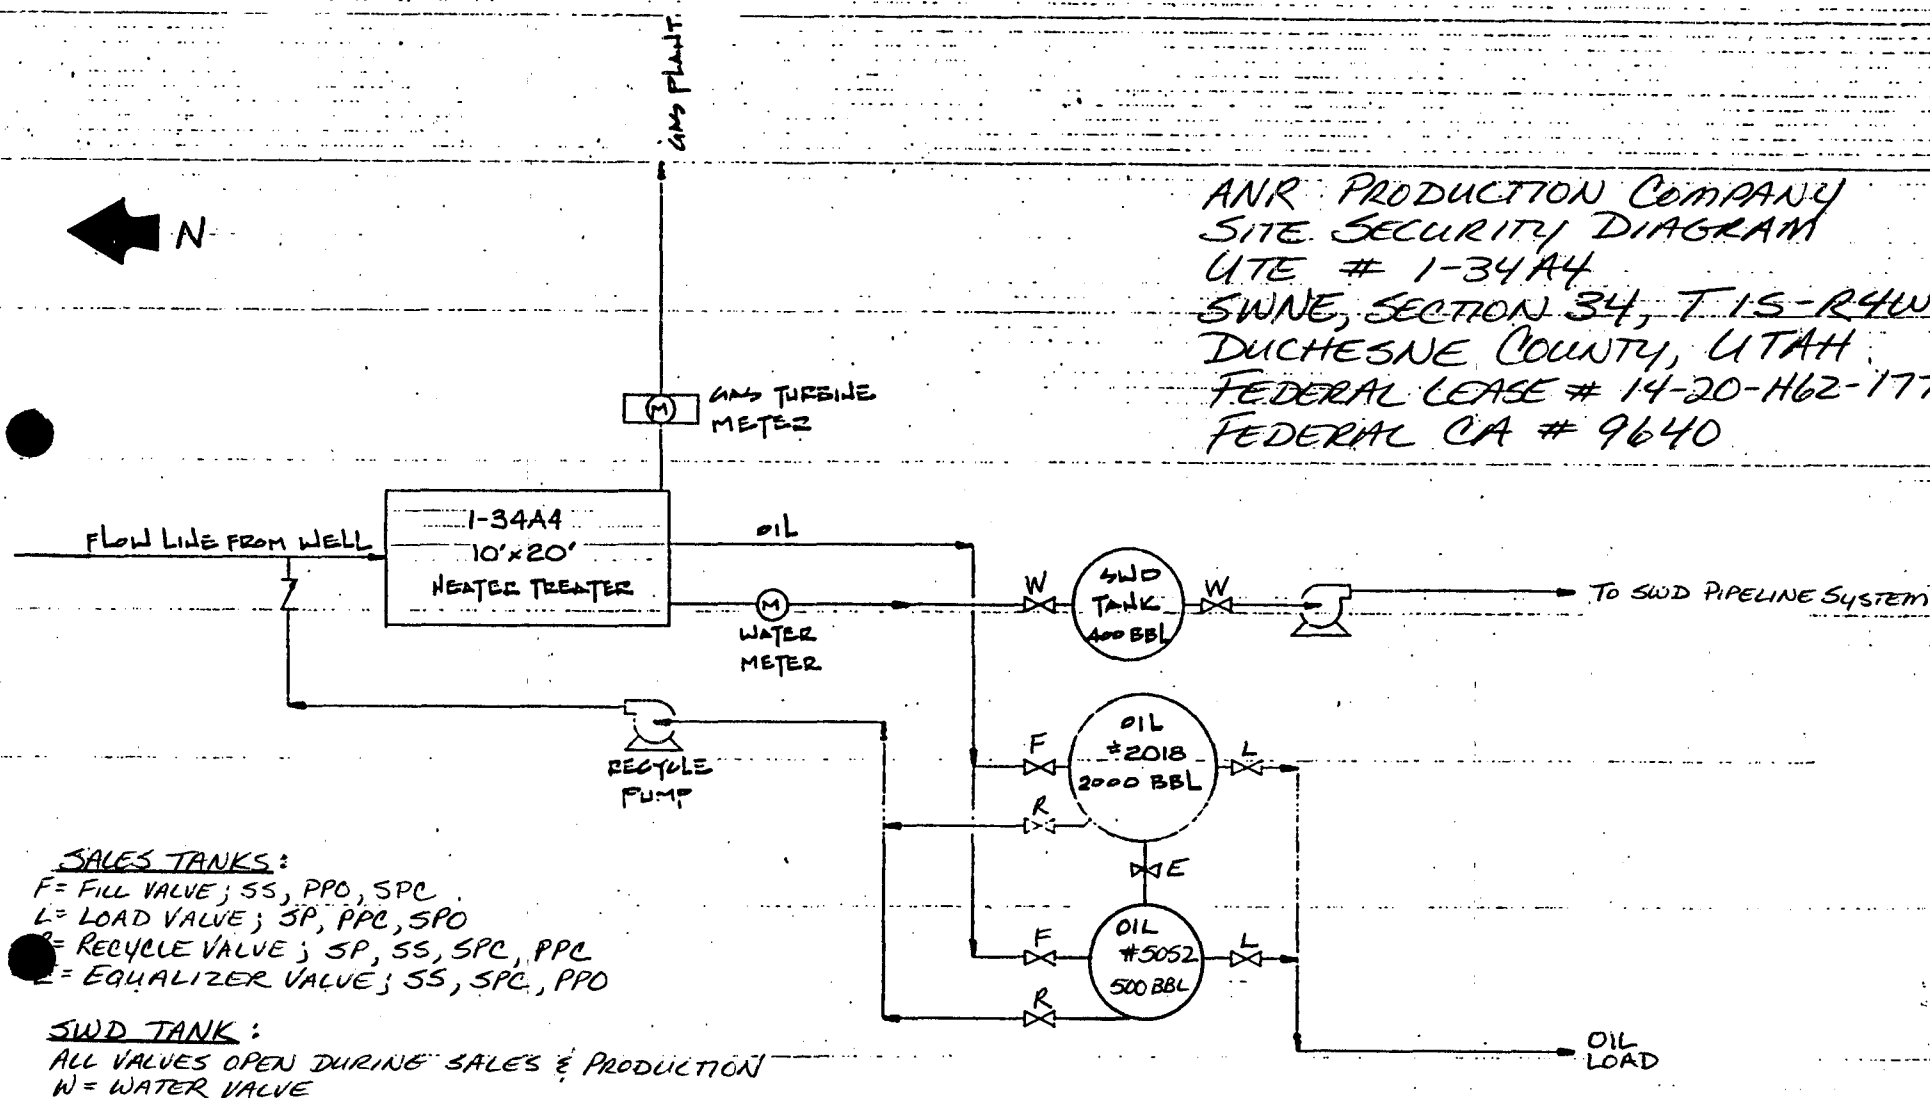 GAS PLANT
N
ANR PRODUCTION COMPANY
SITE SECURITY DIAGRAM
UTE # 1-34A4
SWNE, SECTION 34, T1S-R4W
DUCHESNE COUNTY, UTAH
FEDERAL LEASE # 14-20-H62-177
FEDERAL CA # 9640
M
GAS TURBINE
METER
FLOW LINE FROM WELL
1-34A4
10'x20'
HEATER TREATER
OIL
M
WATER
METER
W
SWD
TANK
400 BBL
W
TO SWD PIPELINE SYSTEM
RECYCLE
PUMP
F
OIL
#2018
2000 BBL
L
R
E
F
OIL
#5052
500 BBL
L
R
OIL
LOAD
SALES TANKS:
F= FILL VALVE; SS, PPO, SPC
L= LOAD VALVE; SP, PPC, SPO
= RECYCLE VALVE; SP, SS, SPC, PPC
= EQUALIZER VALVE; SS, SPC, PPO
SWD TANK:
ALL VALVES OPEN DURING SALES & PRODUCTION
W = WATER VALVE